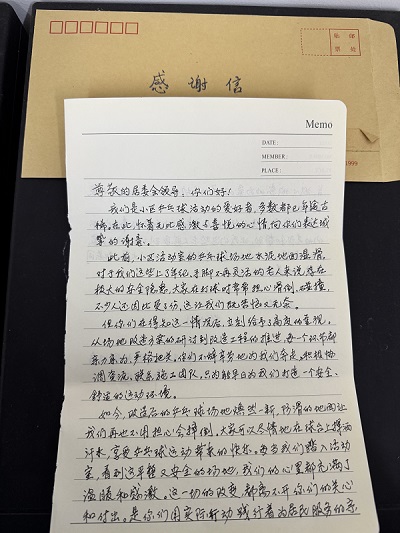 贴 印
票 处
感谢信
1999
Memo
DATE:
MEMBER:
PLACE:
尊敬的居委会领导，你们好！
我们是小区乒乓球活动的爱好者，多数都已年逾古
稀。在此，怀着无比感激与喜悦的心情，向你们表达诚
挚的谢意。
此前，小区活动室的乒乓球场地水泥地面湿滑，
对于我们这些上了年纪、手脚不再灵活的老人来说，存在
极大的安全隐患，大家在打球时常常担心滑倒、碰撞，
不少人还因此受了伤，这让我们既苦恼又无奈。
但你们在得知这一情况后，立刻给予了高度的重视，
从场地改造方案的研讨到改造工程的推进，每一个环节都
亲力亲为，严格把关。你们不辞辛劳地为我们奔走，积极协
调资源，联系施工团队，只为能早日为我们打造一个安全、
舒适的运动环境。
如今，改造后的乒乓球场地焕然一新，防滑的地面让
我们再也不用担心会摔倒，大家可以尽情地在球台上挥洒
汗水，享受乒乓球运动带来的快乐。每当我们踏入活动
室，看到这平整又安全的场地，我们的心里都充满了
温暖和感激。这一切的改变，都离不开你们的关心
和付出。是你们用实际行动践行着为居民服务的宗